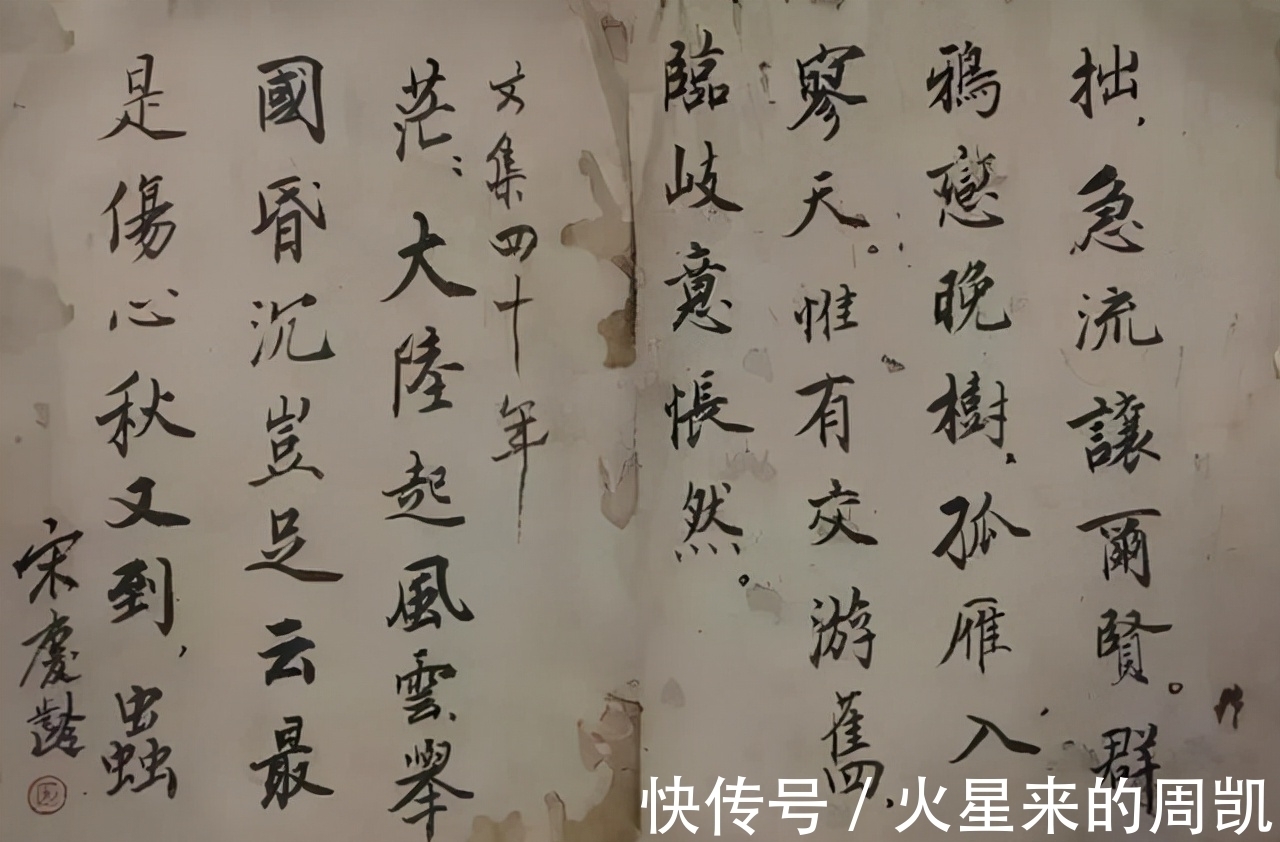 拙，急流讓爾賢。群
鴉戀晚樹，孤雁入
寥天。惟有交游舊，
臨歧意悵然。
文集四十年
茫：大陸起風雲舉
國昏沉豈足云最
是傷心秋又到，蟲
宋慶齡
快传号 / 火星来的周凯